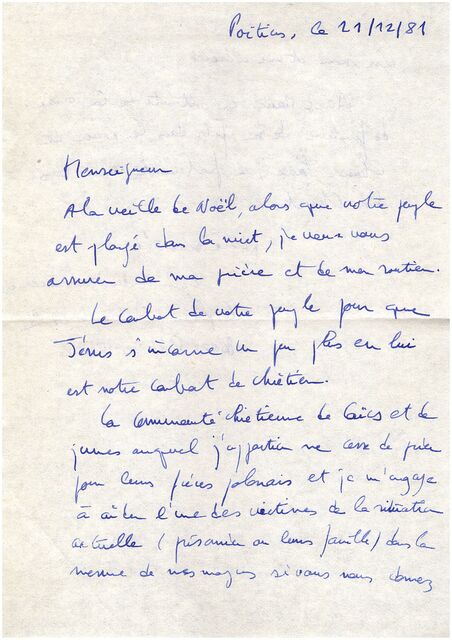 Poitiers, le 21/12/81
Monseigneur
A la veille de Noël, alors que votre peuple
est plongé dans la nuit, je veux vous
assurer de ma prière et de mon soutien.
Le combat de votre peuple pour que
Jésus s'incarne un peu plus en lui
est notre combat de chrétien.
La communauté chrétienne de laïcs et de
jeunes auquel j'appartiens ne cesse de prier
pour leurs frères polonais et je m'engage
à aider l'une des victimes de la situation
actuelle (prisonnier ou leurs famille) dans la
mesure de mes moyens si vous nous donnez